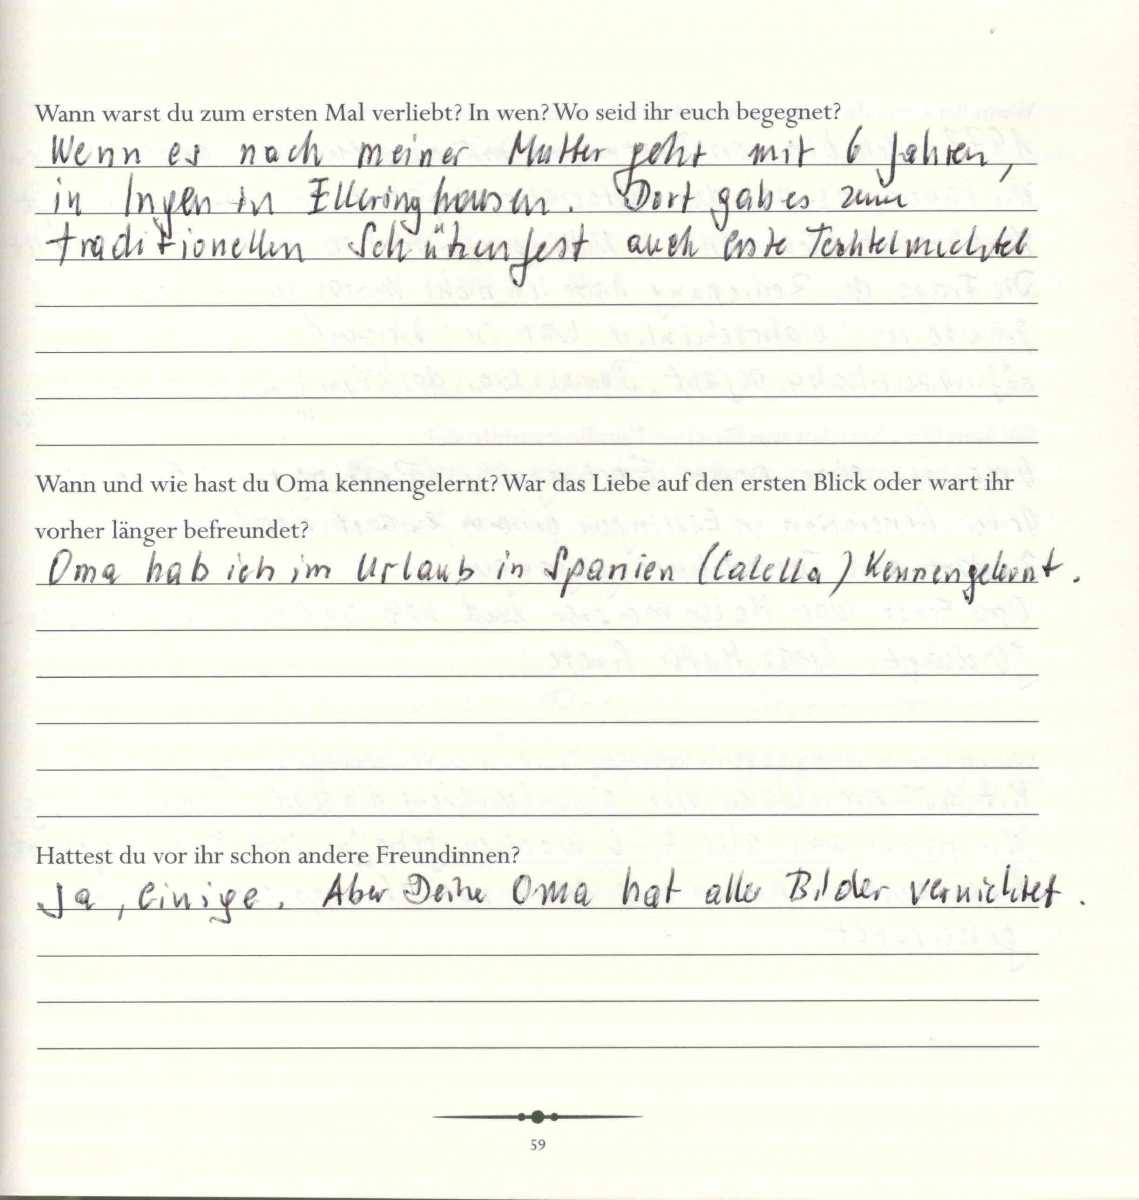 Wann warst du zum ersten Mal verliebt? In wen? Wo seid ihr euch begegnet?
Wenn es nach meiner Mutter geht mit 6 Jahren,
in Ingen in Elleringhausen. Dort gab es zum
traditionellen Schützenfest auch erste Techtelmechtel
Wann und wie hast du Oma kennengelernt? War das Liebe auf den ersten Blick oder wart ihr
vorher länger befreundet?
Oma hab ich im Urlaub in Spanien (Calella) kennengelernt.
Hattest du vor ihr schon andere Freundinnen?
Ja, einige. Aber Deine Oma hat alle Bilder vernichtet.
59